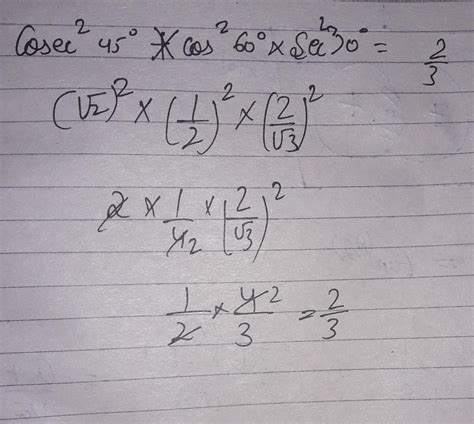 Cosec² 45° × cos² 60° × Sec² 30° = 2/3
(√2)² × (1/2)² × (2/√3)²
2 × 1/4 2 × (2/√3)²
1/2 × 4 2/3 = 2/3